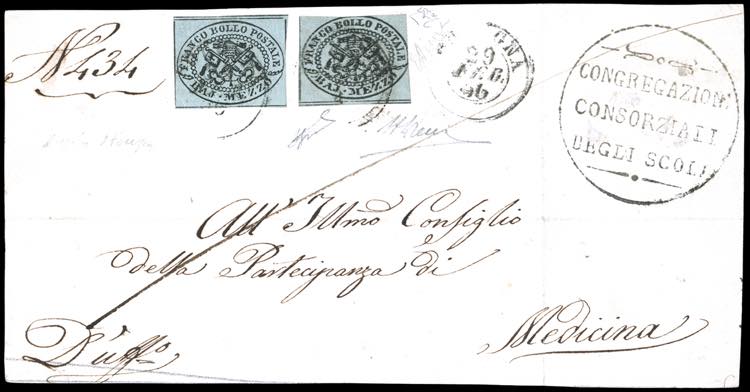 N 434
FRANCO BOLLO POSTALE
BAJ. MEZZO
FRANCO BOLLO POSTALE
BAJ. MEZZO
GNA
29
FEB.
56
CONGREGAZIONI
CONSORZIALI
DEGLI SCOLI
All' Illmo Consiglio
della Partecipanza di
Medicina
D'uffo